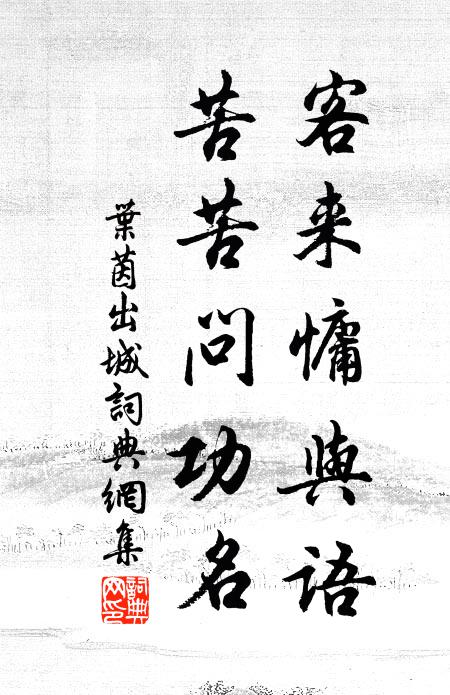 客来慵與語
苦苦問功名
葉茵出城詞典網集
詞典網印